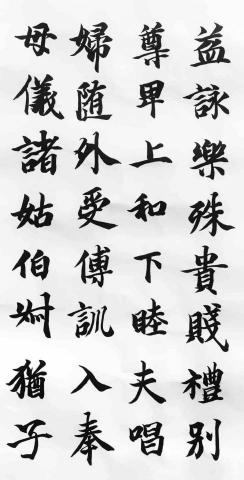 益詠樂殊貴賤禮别
尊卑上和下睦夫唱
婦随外受傅訓入奉
母儀諸姑伯叔猶子